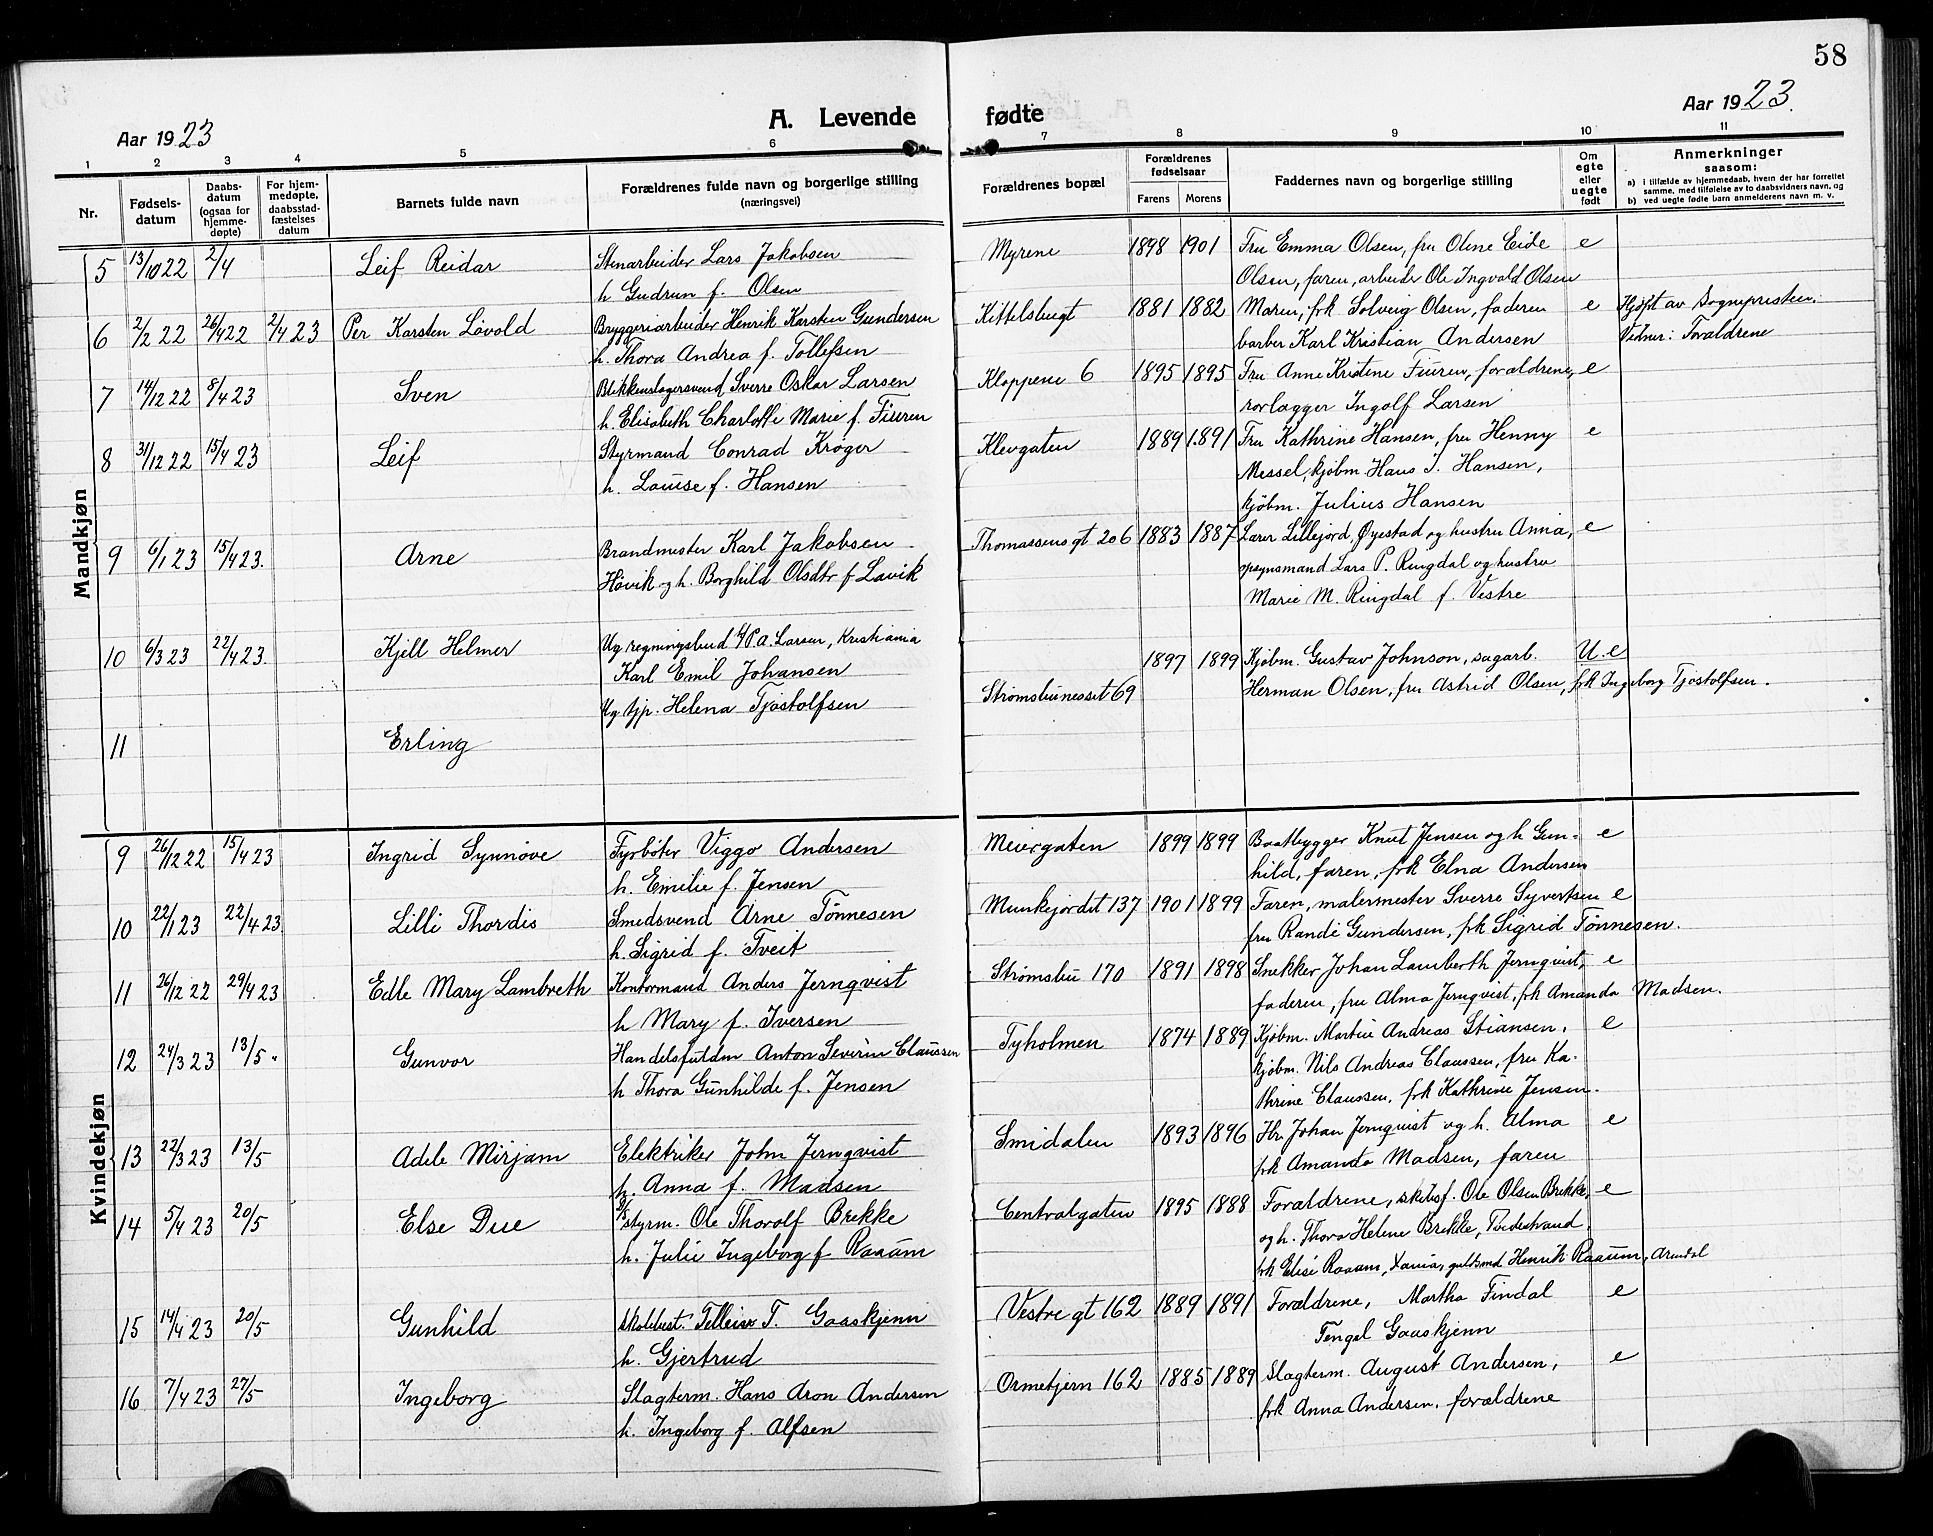 58
Aar 1923
A. Levende fødte
Aar 1923.
1 2 3 4 5 6 7 8 9 10 11
Nr.
Fødsels-
datum
Daabs-
datum
(ogsaa for
hjemme-
døpte)
For hjem-
medøpte,
daabsstad-
fæstelses
datum
Barnets fulde navn
Forældrenes fulde navn og borgerlige stilling
(næringsvei)
Forældrenes bopæl
Forældrenes
fødselsaar
Farens Morens
Faddernes navn og borgerlige stilling
Om
egte
eller
uegte
født
Anmerkninger
saasom:
a) i tilfælde av hjemmedaab, hvem der har forrettet
samme, med tilføielse av to daabsvidners navn, og
b) ved uegte fødte barn anmelderens navn m. v.
Mandkjøn
5 13/10 22 2/4 Leif Reidar Stenarbeider Lars Jakobsen Myrene 1898 1901 Fru Emma Olsen, fru Oline Eide e
h Gudrun f. Olsen Olsen, faren, arbeider Ole Ingvald Olsen
6 2/2 22 26/4 22 2/4 23 Per Karsten Lövold Bryggeriarbeider Henrik Karsten Gundersen Kittelsbugt 1881 1882 Maren, frk Solveig Olsen, faderen e Hjdpt av Sognepresten.
h. Thora Andrea f. Tollefsen barber Karl Kristian Andersen Vidner: Forældrene
7 14/12 22 8/4 23 Sven Blikkenslagersvend Sverre Oskar Larsen Kloppene 6 1895 1895 Fru Anne Kristine Fiuren, forældrene, e
h. Elisabeth Charlotte Marie f. Fiuren rorlægger Ingolf Larsen
8 31/12 22 15/4 23 Leif Styrmand Conrad Krøger Klevgaten 1889 1891 Fru Kathrine Hansen, fru Henny e
h. Louise f. Hansen Messel, kjøbm. Hans J. Hansen,
kjøbm. Julius Hansen
9 6/1 23 15/4 23. Arne Brandmester Karl Jakobsen Thomassens gt 206 1883 1887 Lærer Lillejord, Øyestad og hustru Anna, e
Høvik og h. Borghild Olsdtr f Lavik opsynsmand Lars P. Ringdal og hustru
Marie M. Ringdal f. Vestre
10 6/3 23 22/4 23. Kjell Helmer Ug regningsbud A/P.A. Larsen, Kristiania
Karl Emil Johansen 1897 1899 Kjøbm. Gustav Johnson, sagarb. U.e
Ug tjp. Helena Tjøstolfsen Strømsbunesset 69 Herman Olsen, fru Astrid Olsen, frk Ingeborg Tjøstolfsen.
11 Erling
Kvindekjøn
9 26/12 22 15/4 23 Ingrid Synnøve Fyrbøter Viggo Andersen Meiergaten 1899 1899 Baatbygger Knut Jensen og h Gun- e
h. Emilie f. Jensen hild, faren, frk Elna Andersen
10 22/1 23 22/4 23. Lilli Thordis Smedsvend Arne Tönnesen Munkejordet 137 1901 1899 Faren, malermester Sverre Syvertsen e
h. Sigrid f. Tveit fru Randi Gundersen, frk Sigrid Tönnesen.
11 26/12 22 29/4 23 Edle Mary Lambreth Kontormand Anders Jernqvist Strømsbu 170 1891 1898 Snekker Johan Lamberth Jernqvist, e
h Mary f. Iversen faderen, fru Alma Jernqvist, frk Amanda Madsen.
12 24/3 23 13/5 " Gunvor Handelsfuldm Anton Severin Claussen Tyholmen 1874 1889 Kjøbm. Martin Andreas Stiansen, e
h Thora Gunhilde f. Jensen kjøbm. Nils Andreas Claussen, fru Ka-
thrine Claussen, frk Kathrine Jensen.
13 22/3 23 13/5 Adele Mirjam Elektriker John Jernqvist Smidalen 1893 1896 Hr. Johan Jernqvist og h. Alma e
h. Anna f. Madsen frk Amanda Madsen, faren
14 5/4 23 20/5 Else Due D/S styrm. Ole Thorolf Brekke Centralgaten 1895 1888 Forældrene, skibsf. Ole Olsen Brekke, e
h. Julie Ingeborg f Raaum og h. Thora Helene Brekke, Tvedestrand.
frk Elise Raaum, Xania, guldsmd Henrik Raaum, Arendal
15 14/4 23 20/5 Gunhild Skolebest. Telleiv T. Gaaskjenn Vestre gt 162 1889 1891 Forældrene, Martha Findal e
h. Gjertrud Tengel Gaaskjenn
16 7/4 23 27/5 Ingeborg Slagterm. Hans Aron Andersen Ormetjern 162 1885 1889 Slagterm. August Andersen, e
h. Ingeborg f. Alfsen frk Anna Andersen, forældrene